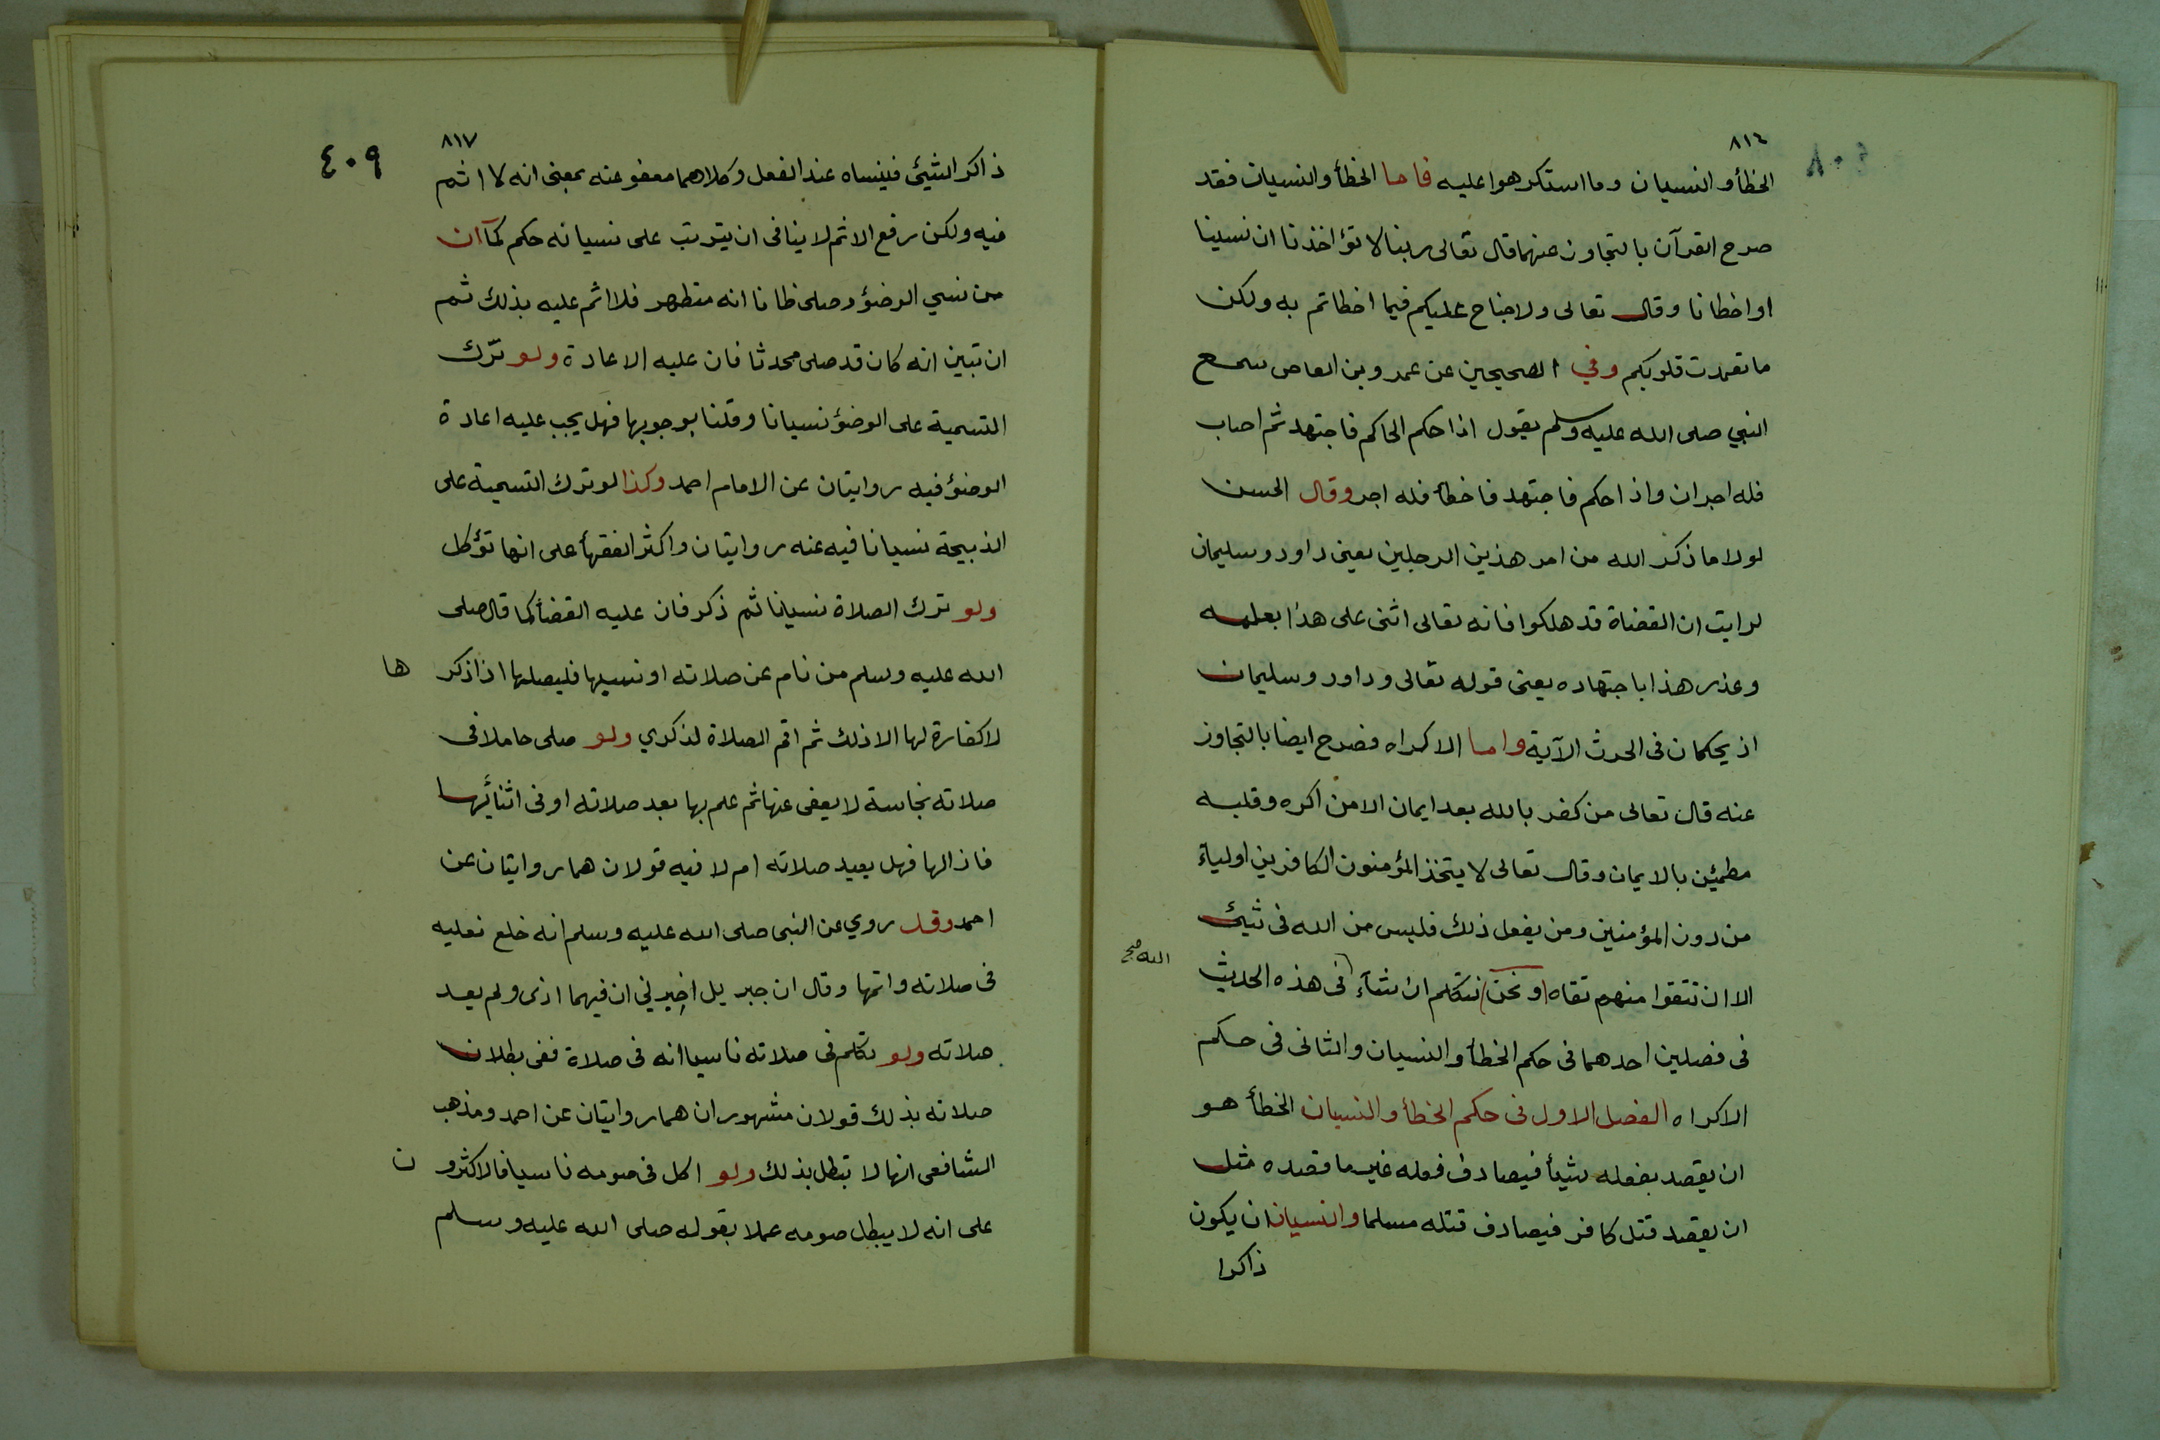 ٨١٦
٤٠٨
الخطأ و النسيان وما استكرهوا عليه فاما الخطأ والنسيان فقد
صرح القرآن بالتجاوز عنهما قال تعالى ربنا لا تؤاخذنا ان نسينا
او اخطانا وقال تعالى ولا جناح عليكم فيما اخطاتم به ولكن
ما تعمدت قلوبكم وفي الصحيحين عن عمرو بن العاص سمع
النبي صلى الله عليه وسلم يقول اذا حكم الحاكم فاجتهد ثم اصاب
فله اجران واذا حكم فاجتهد فاخطأ فله اجر وقال الحسن
لولا ما ذكر الله من امر هذين الرجلين يعني داود وسليمان
لرايت ان القضاة قد هلكوا فانه تعالى اثنى على هذا بعلمه
وعذر هذا باجتهاده يعنى قوله تعالى وداود وسليمان
اذ يحكمان فى الحرث الآية واما الاكراه فصرح ايضا بالتجاوز
عنه قال تعالى من كفر بالله بعد ايمان الا من اكره وقلبه
مطمئن بالايمان وقال تعالى لا يتخذ المؤمنون الكافرين اولياء
من دون المؤمنين ومن يفعل ذلك فليس من الله فى شيئ
الا ان تتقوا منهم تقاه او نحن نتكلم ان شآء فى هذه الحديث
الله صح
فى فصلين احدهما فى حكم الخطأ والنسيان والثانى فى حكم
الاكراه الفصل الاول فى حكم الخطأ والنسيان الخطأ هو
ان يقصد بفعله شيأ فيصادف فعله غير ما قصده مثل
ان يقصد قتل كافر فيصادف قتله مسلما والنسيان ان يكون
ذاكرا
٨١٧
٤٠٩
ذاكر الشيئ فينساه عند الفعل وكلاهما معفو عنه بمعنى انه لا اثم
فيه ولكن رفع الاثم لا ينافى ان يترتب على نسيانه حكم كما ان
من نسي الوضؤ وصلى ظانا انه متطهر فلا اثم عليه بذلك ثم
ان تبين انه كان قد صلى محدثا فان عليه الاعادة ولو ترك
التسمية على الوضؤ نسيانا وقلنا بوجوبها فهل يجب عليه اعادة
الوضؤ فيه روايتان عن الامام احمد وكذا لو ترك التسمية على
الذبيحة نسيانا فيه عنه روايتان واكثر الفقهأ على انها تؤكل
ولو ترك الصلاة نسيانا ثم ذكر فان عليه القضأ كما قال صلى
الله عليه وسلم من نام عن صلاته او نسيها فليصلها اذا ذكر ها
لا كفارة لها الا ذلك ثم اقم الصلاة لذكري ولو صلى حاملا فى
صلاته نجاسة لا يعفى عنها ثم علم بها بعد صلاته او فى اثنائها
فازالها فهل يعيد صلاته ام لا فيه قولان هما روايتان عن
احمد وقد روي عن النبى صلى الله عليه وسلم انه خلع نعليه
فى صلاته واتمها وقال ان جبريل اخبرني ان فيهما اذى ولم يعد
صلاته ولو تكلم فى صلاته ناسيا انه فى صلاة ففى بطلان
صلاته بذلك قولان مشهوران هما روايتان عن احمد ومذهب
الشافعى انها لا تبطل بذلك ولو اكل فى صومه ناسيا فالاكثرو ن
على انه لا يبطل صومه عملا بقوله صلى الله عليه وسلم